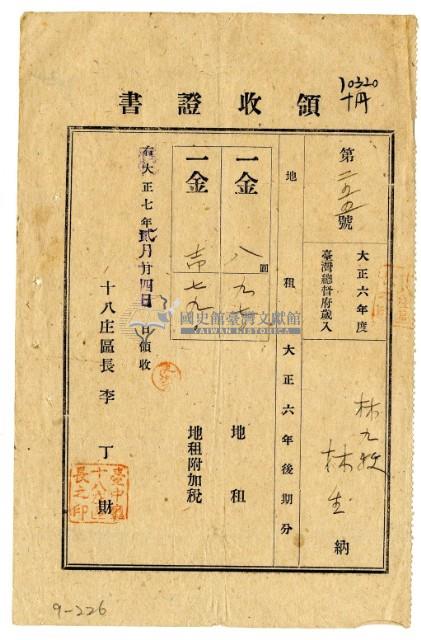 10320
領收證書
第二五五號
大正六年度
臺灣總督府歲入
納
林九牧
林生
地租 大正六年後期分
一金 八九七 圓 地租
一金 壱七九 地租附加税
大正七年貳月廿四日領收
十八庄區長李丁財
臺中廳
十八庄區
長之印
國史館臺灣文獻館
TAIWAN HISTORICA
9-226